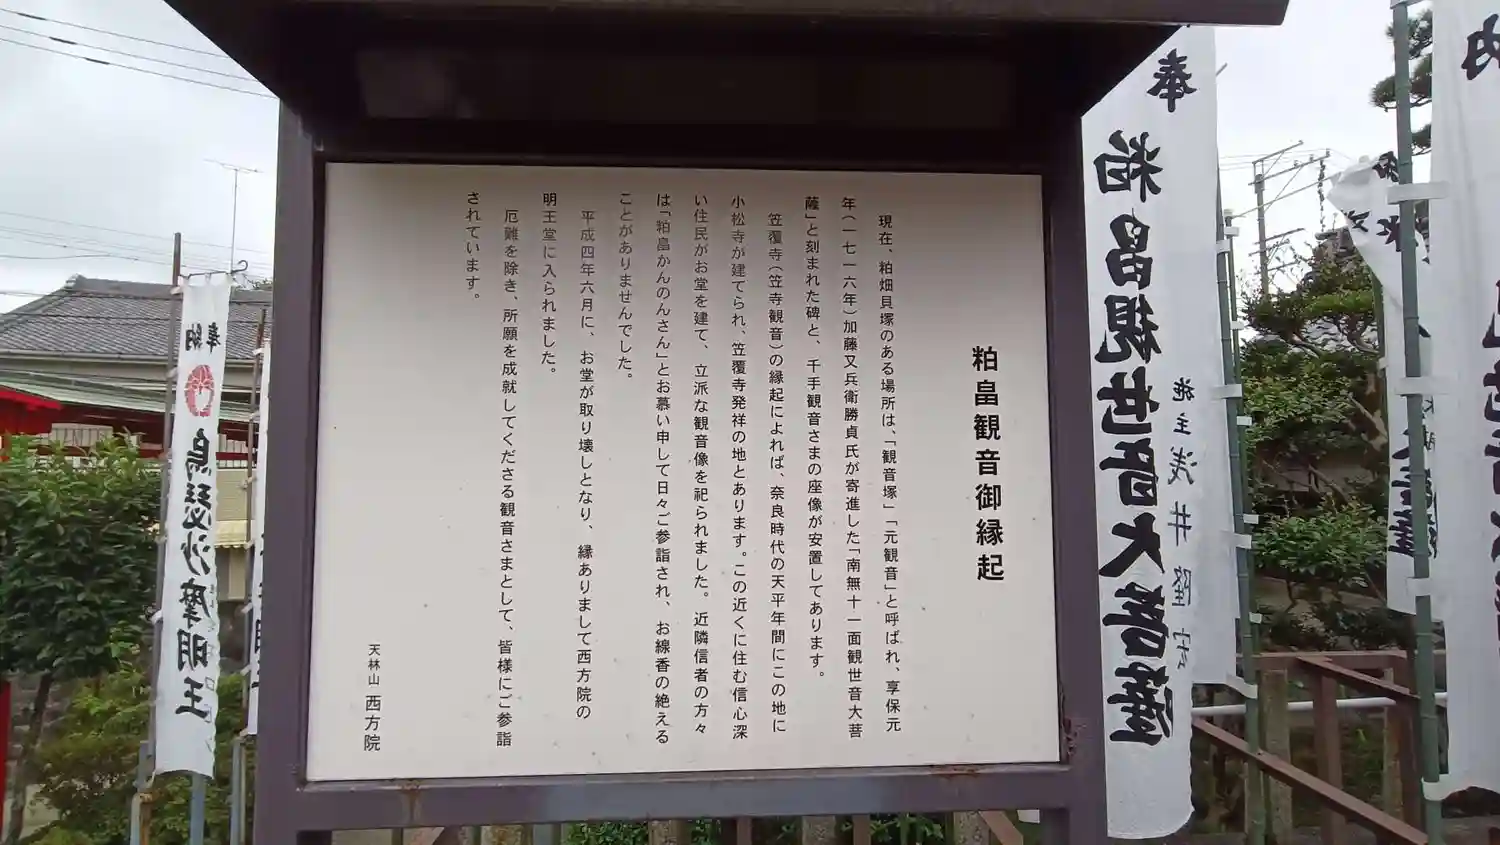 粕畠観音御縁起
現在、粕畑貝塚のある場所は、「観音塚」「元観音」と呼ばれ、享保元
年(一七一六年)加藤又兵衛勝貞氏が寄進した「南無十一面観世音大菩
薩」と刻まれた碑と、千手観音さまの座像が安置してあります。
笠覆寺(笠寺観音)の縁起によれば、奈良時代の天平年間にこの地に
小松寺が建てられ、笠覆寺発祥の地とあります。この近くに住む信心深
い住民がお堂を建て、立派な観音像を祀られました。近隣信者の方々
は「粕畠かんのんさん」とお慕い申して日々ご参詣され、お線香の絶える
ことがありませんでした。
平成四年六月に、お堂が取り壊しとなり、縁ありまして西方院の
明王堂に入られました。
厄難を除き、所願を成就してくださる観音さまとして、皆様にご参詣
されています。
天林山 西方院
奉
粕畠観世音大菩薩
施主 浅井隆宏
奉納
烏瑟沙摩明王
納